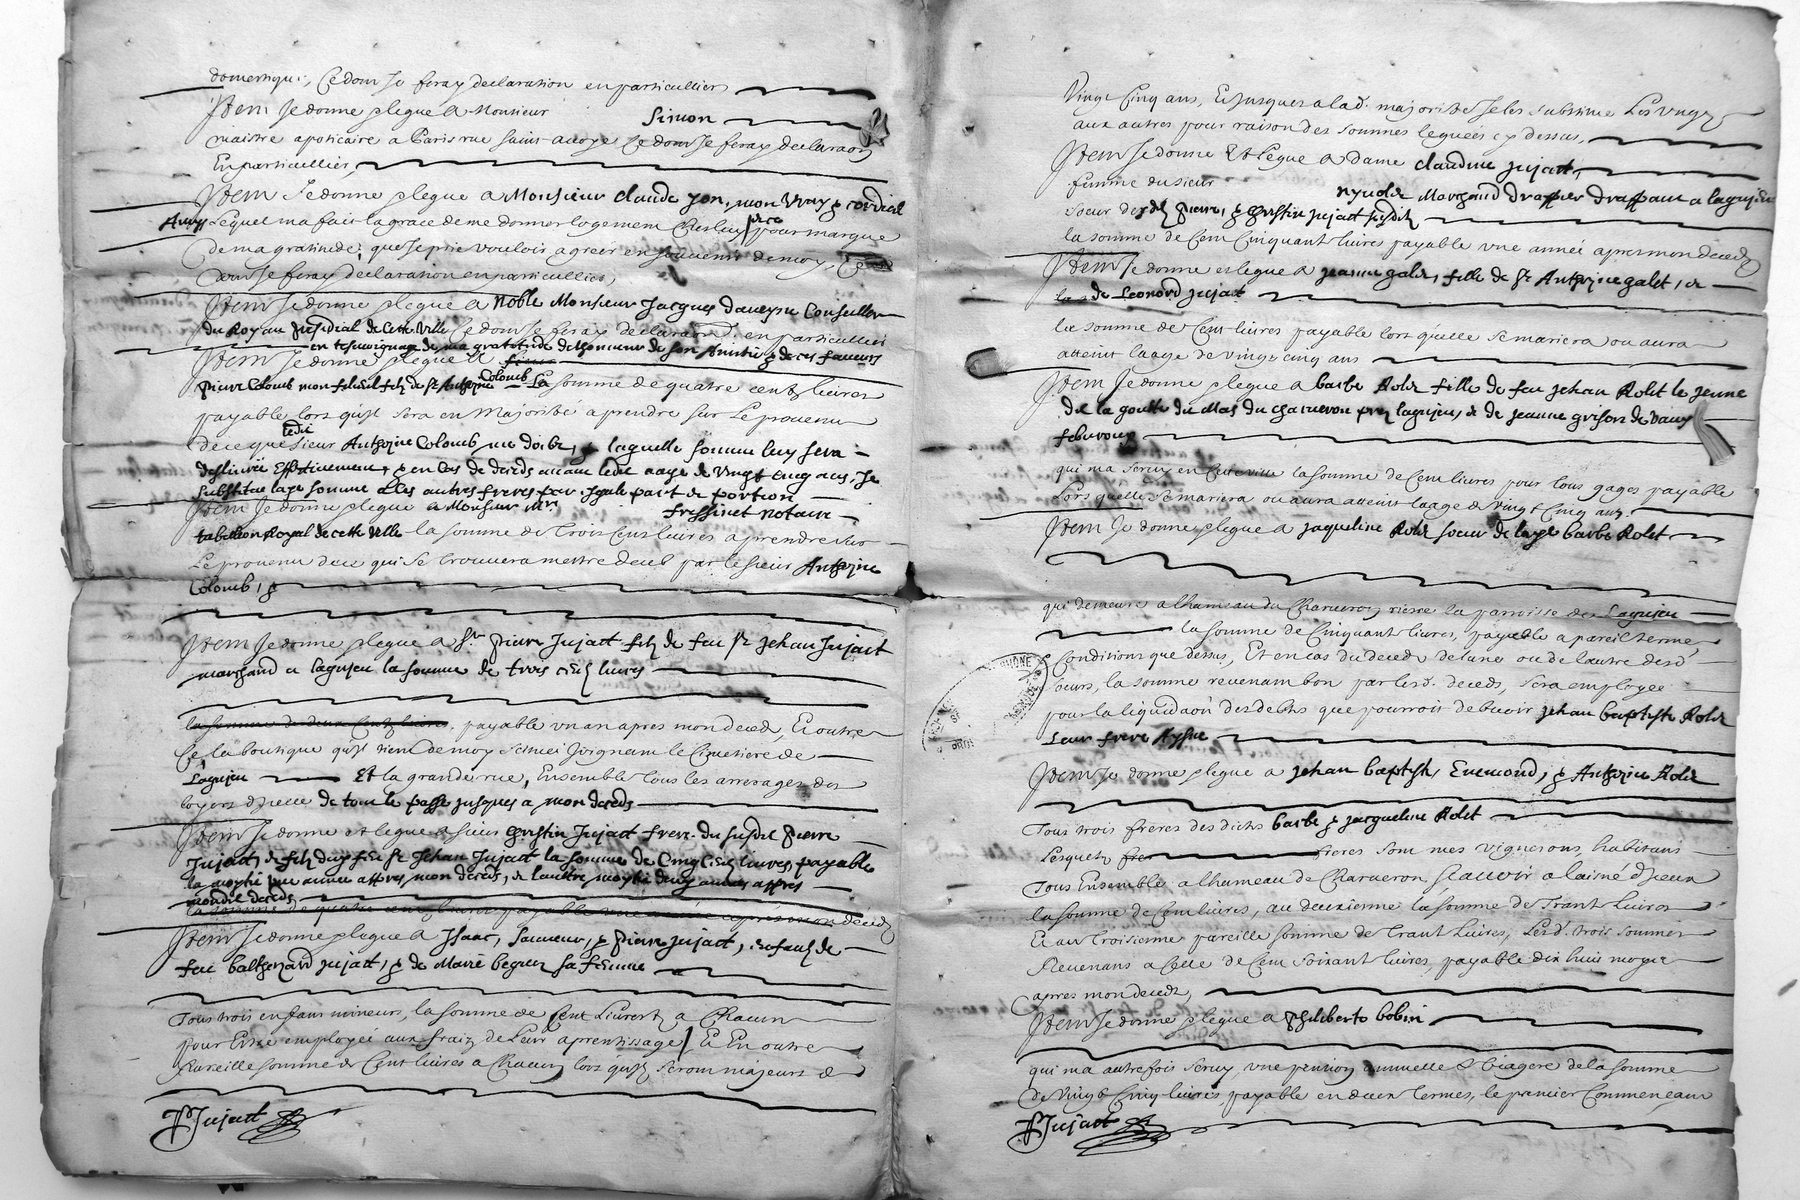 domestique, Ce dont Je feray declaration en particullier
Item Je donne & legue A Monsieur Simon
maistre apoticaire a Paris rue saint avoye Ce dont Je feray declaraon
En particullier,
Item Je donne & legue a Monsieur claude yon, mon vray & cordial
Amy Lequel m'a fait la grace de me donner logement Chez luy pour marque
De ma gratitude, que Je prie vouloir agreer en souvenir de moy, Ce
dont Je feray declaration en particullier,
Item Je donne & legue a noble Monsieur Jacques daveyne Conseiller
du Roy au presidial de Cette Ville Ce dont Je feray declaraon en particullier
en tesmoignage de ma gratitude de l'honneur de son Amitié & de ces faveurs
Item Je donne & legue A
pierre Colomb mon filieul filz de Sr Anthoine Colomb La somme de quatre centz livres
payable lors qu'Jl sera en Majorité a prendre sur Le provenu
de ce que ledit sieur Anthoine Colomb me doibt, & laquelle somme luy sera
deslivrée Effectivement, & en cas de deceds avant ledit aage de vingt cinq ans, Je
substitue lad somme a les autres freres par Jgale part et portion
Item Je donne & legue a Monsieur Mr fressinet notaire
tabellion Royal de cette Ville la somme de Trois Cens livres a prendre sur
Le provenu de ce qui se trouvera m'estre deub par le sieur Anthoine
Colomb, &
Item Je donne & legue a Sr pierre Jujatt filz de feu Sr Jehan Jujatt
marchand a lagnieu la somme de trois cens livres
la somme de deux Centz livres, payable un an apres mon deced, Et outre
Ce la boutique qu'Jl tient de moy scituée Joignant le Cimetiere de
Lagnieu Et la grande rue, Ensemble tous les arrerages des
loyers d'Jcelle de tout le passé jusques a mon deceds
Item Je donne et legue a sieur Christin Jujatt frere du susdit pierre
Jujatt, & filz dud feu Sr Jehan Jujatt la somme de Cinq Cens livres, payable
la moytié une année appres mon deceds, & l'autre moytié deux années appres
mondit deceds
la somme de quatre cens livres payable une année apres mon deceds
Item Je donne & legue a Jsaac, Sauveur, & pierre Jujatt, enfans de
feu balthezard Jujatt, & de Marie beguez sa femme
Tous trois enfans mineurs, la somme de Cent Livres a Chacun
pour Estre employée aux fraiz de Leur aprentissage, Et En outre
Pareille somme de Cent livres a Chacun lors qu'Jlz seront majeurs de
PJujatt
Vingt Cinq ans, Et Jusques a lad. majorité Je les substitue Les Unez
aux autres pour raison des sommes leguées cy dessus,
Item Je donne Et legue A dame claudine jujatt,
femme du sieur Marchand drappier drappant a lagnieu
soeur desdz pierre, & Christin jujatt susditz
la somme de Cent Cinquant livres payable une année apres mon deced
Item Je donne et legue a jeanne galet, fille de Sr Anthoine galet, &
de Leonord jujatt
la somme de Cent livres payable lors qu'elle se mariera ou aura
atteint l'aage de vingt cinq ans
Item Je donne & legue a barbe Rolet fille de feu Jehan Rolet le jeune
dit la goutte du Mas du charveron prez lagnieu, & de jeanne grisord de vaux
febvroux
qui m'a servy en Cette ville la somme de Cent livres pour tous gages payable
Lors qu'elle se mariera ou aura atteint l'aage de vingt Cinq ans.
Item Je donne & legue a jaqueline Rolet soeur de lad barbe Rolet
qui demeure a l'hameau du Charveron riere la parroisse de Lagnieu
la somme de Cinquant livres, payable a pareil terme
Conditions que dessus, Et en cas du deced de l'une ou de l'autre desd
soeurs, la somme revenant bon par lesd. deceds, sera employée
pour la liquidaon des debtes que pourroit debvoir Jehan baptiste Rolet
Leur frere Aysné
Item Je donne & legue a Jehan baptiste, Evemond, & Anthoine Rolet
Tous trois freres desdictes barbe & jacqueline Rolet
Lesquelz freres sont mes vignerons, habitans
Tous Ensemble, a l'hameau de Charveron sçavoir a l'aisné d'Jceux
la somme de Cent livres, au deuxieme la somme de Trant Livres
Et au Troisieme pareille somme de Trant Livres, Lesd. trois sommes
Revenans a Celle de Cent Soixant livres, payable dix huit moys
apres mon deceds,
Item Je donne & legue a philiberte bobin
qui m'a autrefois servy, une pention annuelle & Viagere de la somme
de Vingt Cinq livres, payable en deux termes, le premier Commençant
PJujatt